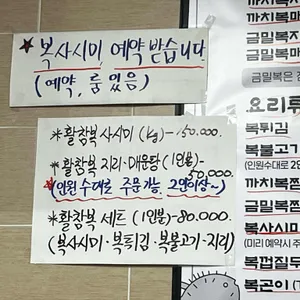 ★복사시미 예약 받습니다
(예약, 룸 있음)
*활참복 사시미 (kg)-150.000.
*활참복 지리·매운탕 (1인분)-50,000
★(인원수대로 주문가능. 2인이상~)
*활참복 세트 (1인분)-80.000.
(복사시미·복튀김·복불고기·지리)
까치복
금밀복지
금밀복매
금밀복은
요리류
복튀김
복불고기
(인원수대로 2인
까치복찜
금밀복찜
복사시미
(미리 예약시 주
복껍질무
복곤이 (